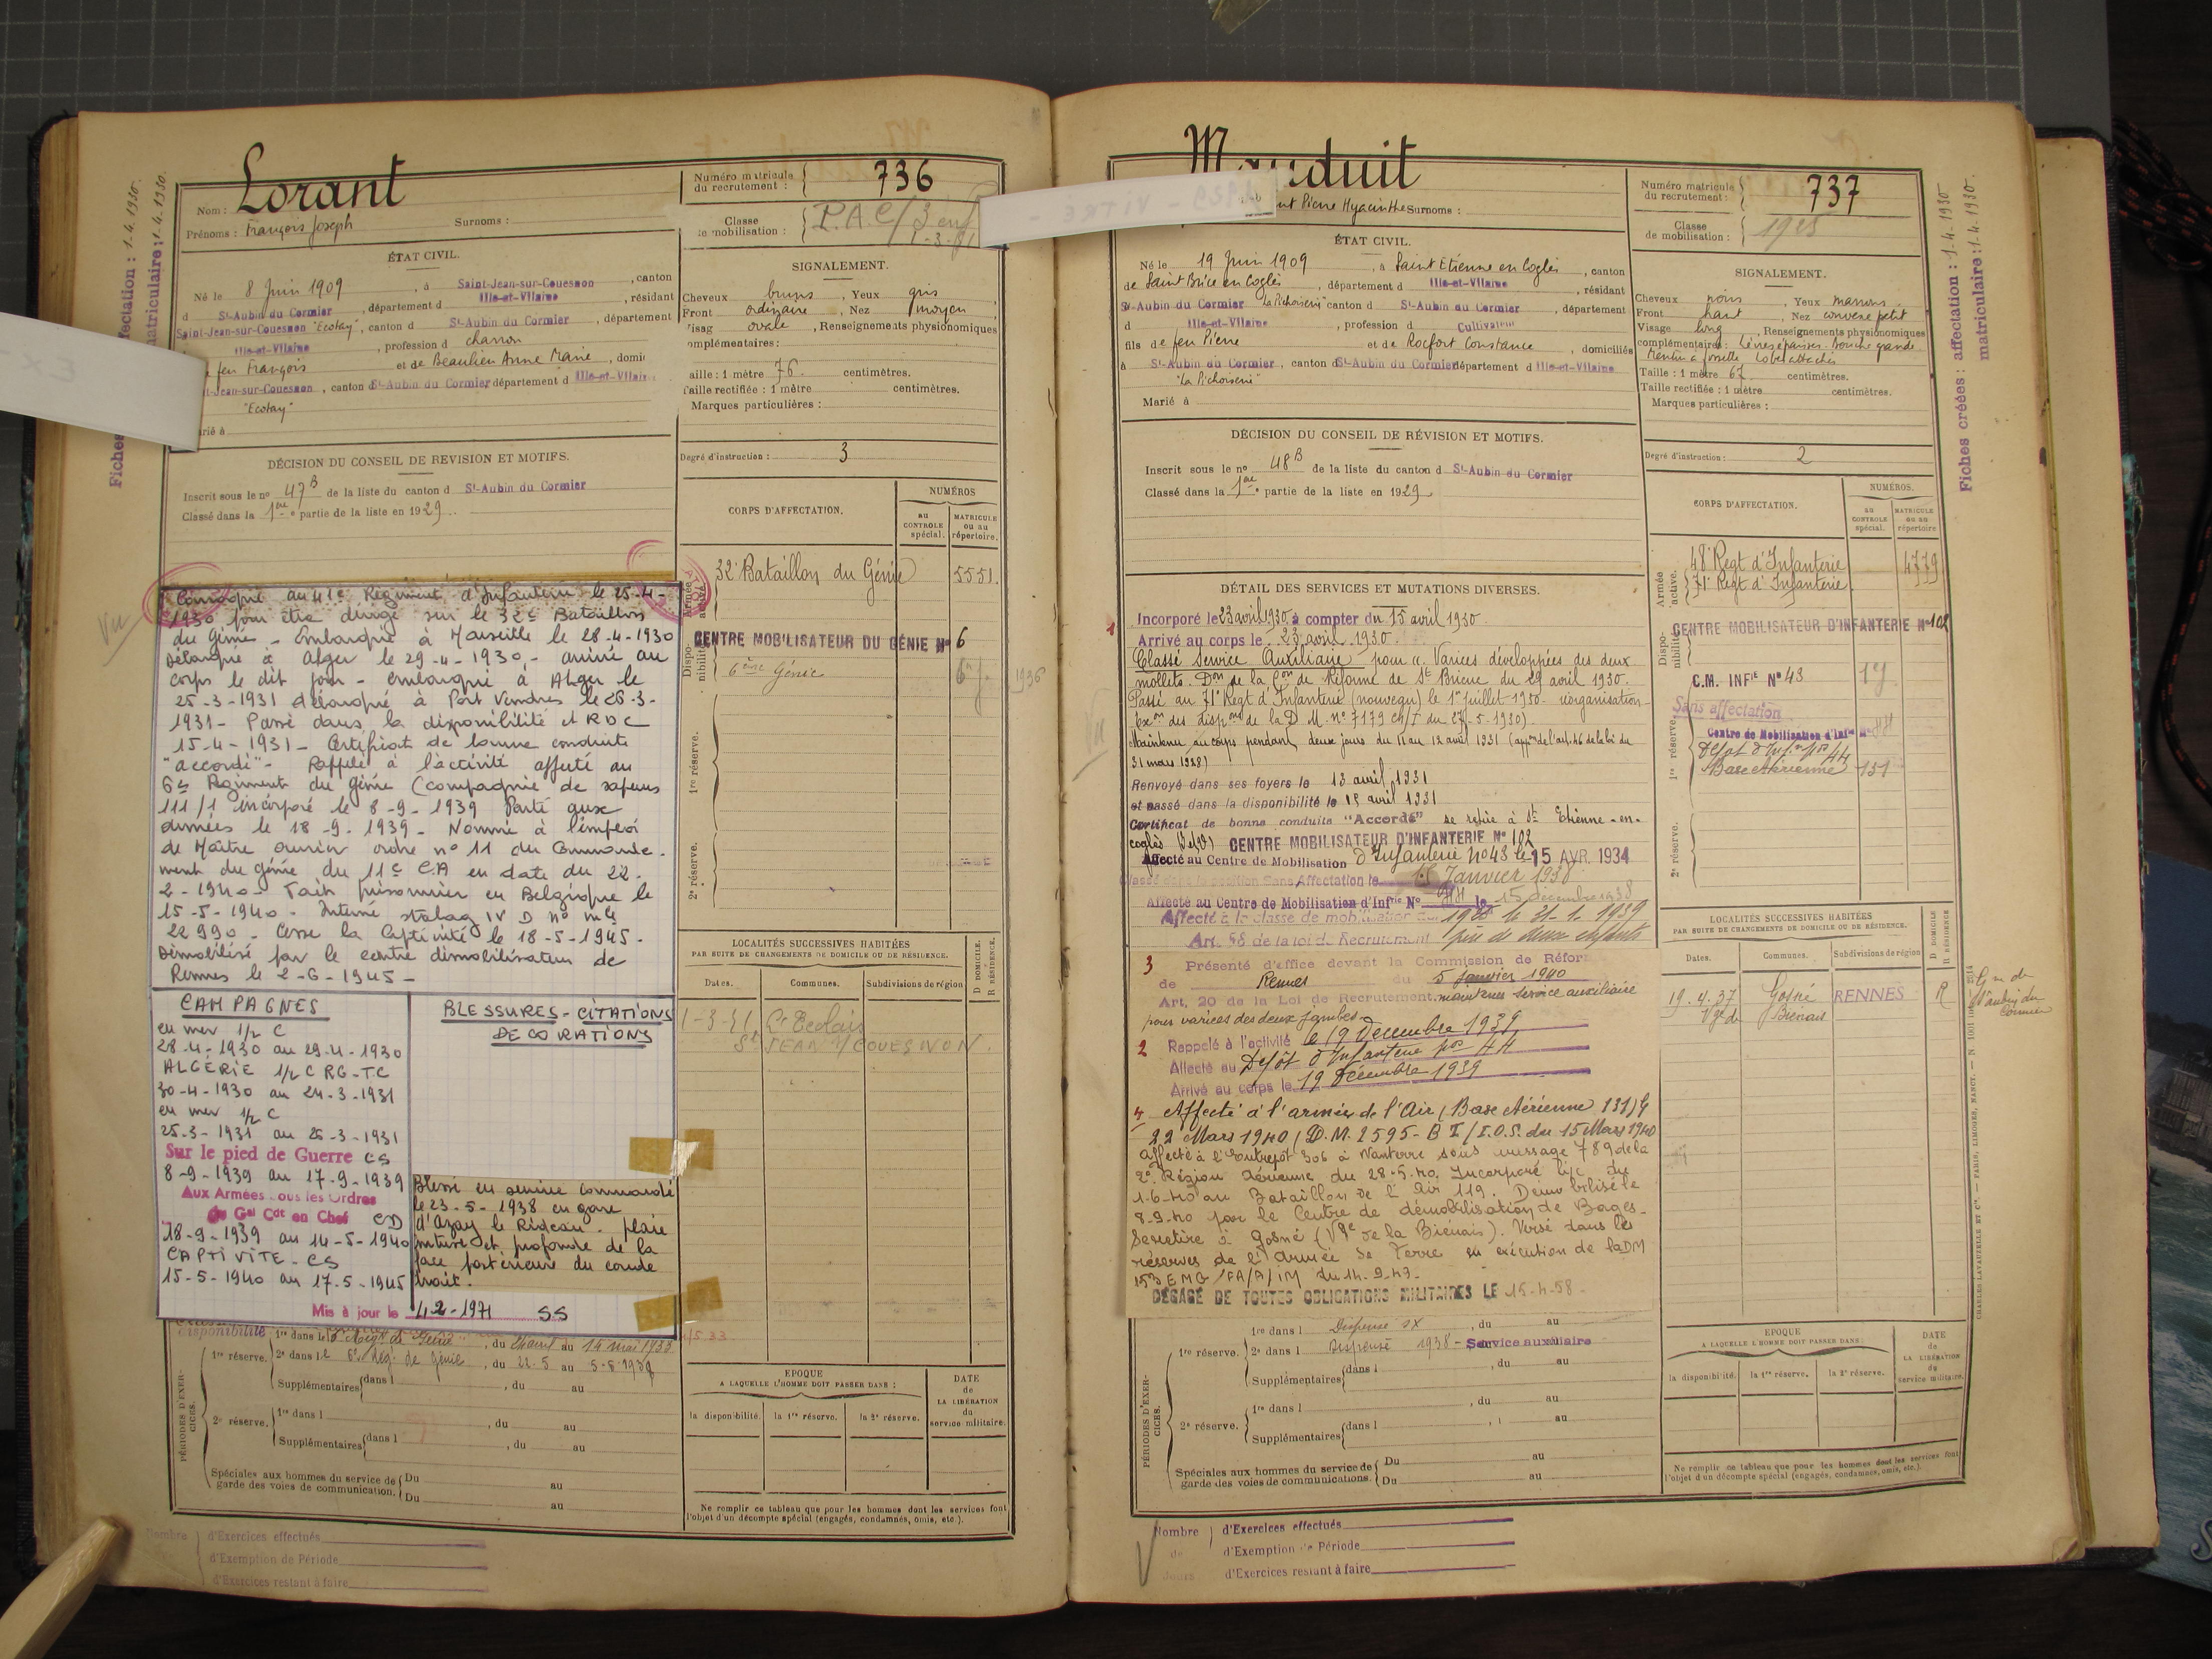 Fiches créées : affectation : 1-4-1930.
matriculaire : 1-4-1930.
Nom : Lorant
Prénoms : François Joseph Surnoms :
Numéro matricule du recrutement : 736
Classe de mobilisation : P.A.C/3 enf
1-3-
ÉTAT CIVIL.
Né le 8 Juin 1909, à Saint-Jean-sur-Couesnon, canton
d St-Aubin du Cormier, département d Ille-et-Vilaine, résidant
Saint-Jean-sur-Couesnon "Ecotay", canton d St-Aubin du Cormier, département
Ille-et-Vilaine, profession d charron
feu François et de Beaulieu Anne Marie, domi
t-Jean-sur-Couesnon, canton d St-Aubin du Cormier département d Ille-et-Vilain
"Ecotay"
arié à
SIGNALEMENT.
Cheveux bruns, Yeux gris
Front ordinaire, Nez moyen
Visag ovale, Renseignements physionomiques
complémentaires :
Taille : 1 mètre 76 centimètres.
Taille rectifiée : 1 mètre centimètres.
Marques particulières :
Degré d'instruction : 3
DÉCISION DU CONSEIL DE REVISION ET MOTIFS.
Inscrit sous le nº 47 B de la liste du canton d St-Aubin du Cormier
Classé dans la 1ère partie de la liste en 1929.
CORPS D'AFFECTATION.
NUMÉROS
au CONTROLE spécial.
MATRICULE ou au répertoire.
Armée active.
32e Bataillon du Génie 5551.
CENTRE MOBILISATEUR DU GÉNIE Nº 6
Disponibilité
6ème Génie
1936
1re réserve.
2e réserve.
Vu
Convoqué au 41e Régiment d'Infanterie le 25-4-
1930 pour être dirigé sur le 32e Bataillon
du génie - Embarqué à Marseille le 28-4-1930
Débarqué à Alger le 29-4-1930 - arrivé au
corps le dit jour - embarqué à Alger le
25-3-1931 débarqué à Port Vendres le 26-3-
1931 - Passé dans la disponibilité et RDC
15-4-1931 - Certificat de bonne conduite
"accordé" - Rappelé à l'activité affecté au
6e Régiment du génie (compagnie de sapeurs
111/1 incorporé le 8-9-1939 Parti aux
armées le 18-9-1939 - Nommé à l'emploi
de Maître ouvrier ordre nº 11 du Commande-
ment du génie du 11e C.A en date du 22-
2-1940 - Fait prisonnier en Belgique le
15-5-1940 - Interné stalag IV D nº mle
22990 - Cesse la Captivité le 18-5-1945 -
Démobilisé par le centre démobilisateur de
Rennes le 2-6-1945 -
CAMPAGNES
en mer 1/2 C
28-4-1930 au 29-4-1930
ALGÉRIE 1/2 C RG-TC
30-4-1930 au 24-3-1931
en mer 1/2 C
25-3-1931 au 26-3-1931
Sur le pied de Guerre CS
8-9-1939 au 17-9-1939
Aux Armées sous les Ordres
du Gal Cdt en Chef CD
18-9-1939 au 14-5-1940
CAPTIVITE - CS
15-5-1940 au 17-5-1945
BLESSURES - CITATIONS
DECORATIONS
Blessé en service commandé
le 23-5-1938 en gare
d'Azay le Rideau - plaie
et profonde de la
face postérieure du coude
droit.
Mis à jour le 4-2-1971 SS
LOCALITÉS SUCCESSIVES HABITÉES
PAR SUITE DE CHANGEMENTS DE DOMICILE OU DE RÉSIDENCE.
D DOMICILE. R RÉSIDENCE.
Dates. Communes. Subdivisions de région
1-3-
St JEAN s/ COUESNON.
PÉRIODES D'EXERCICES.
Disponibilité
1re réserve. 1re dans le Régt de Génie, du au 14 mai 1933
2e dans le 6e Rég. de génie, du 22.5 au
Supplémentaires dans l , du au
2e réserve. 1re dans l , du au
Supplémentaires dans l , du au
Spéciales aux hommes du service de garde des voies de communication. Du au
Du au
EPOQUE
A LAQUELLE L'HOMME DOIT PASSER DANS :
la disponibilité. la 1re réserve. la 2e réserve.
DATE de LA LIBÉRATION du service militaire.
Ne remplir ce tableau que pour les hommes dont les services font
l'objet d'un décompte spécial (engagés, condamnés, omis, etc.).
Nombre d'Exercices effectués
d'Exemption de Période
d'Exercices restant à faire
Mauduit
Pierre Hyacinthe Surnoms :
Numéro matricule du recrutement : 737
Classe de mobilisation : 1928
Fiches créées : affectation : 1-4-1930
matriculaire : 1-4-1930.
ÉTAT CIVIL.
Né le 19 Juin 1909, à Saint Etienne en Coglès, canton
de Saint Brice en Coglès, département d Ille-et-Vilaine, résidant
St-Aubin du Cormier "la Pichoiserie" canton d St-Aubin du Cormier, département
d Ille-et-Vilaine, profession d Cultivateur
fils de feu Pierre et de Rocfort Constance, domiciliés
à St-Aubin du Cormier, canton d St-Aubin du Cormier département d Ille-et-Vilaine
"La Pichoiserie"
Marié à
SIGNALEMENT.
Cheveux noirs, Yeux marrons.
Front haut, Nez convexe petit
Visage long, Renseignements physionomiques
complémentaires : Lèvres épaisses - Bouche grande
Menton à fossette Lobes attachés
Taille : 1 mètre 67 centimètres.
Taille rectifiée : 1 mètre centimètres.
Marques particulières :
Degré d'instruction : 2
DÉCISION DU CONSEIL DE RÉVISION ET MOTIFS.
Inscrit sous le nº 48 B de la liste du canton d St-Aubin du Cormier
Classé dans la 1ère partie de la liste en 1929.
CORPS D'AFFECTATION.
NUMÉROS.
au CONTROLE spécial.
MATRICULE ou au répertoire.
Armée active.
48e Regt d'Infanterie 4779
71e Regt d'Infanterie
Disponibilité
CENTRE MOBILISATEUR D'INFANTERIE Nº 102
C.M. INFie Nº 43
1re réserve.
Sans affectation
Centre de Mobilisation d'Infie Nº
Dépôt d'Infie nº 44
Base Aérienne 131
2e réserve.
DÉTAIL DES SERVICES ET MUTATIONS DIVERSES.
1 Incorporé le 23 avril 1930 à compter du 15 avril 1930
Arrivé au corps le 23 avril 1930
Classé Service Auxiliaire pour « Varices développées des deux
mollets. Don de la Con de Réforme de St Brieuc du 29 avril 1930.
Passé au 71e Regt d'Infanterie (nouveau) le 1er juillet 1930 - réorganisation
Exon des dispons de la D.M. nº 7179 du 27-5-1930)
Maintenu au corps pendant deux jours du 11 au 12 avril 1931 (appon de l'art. 46 de la loi du
31 mars 1928)
Renvoyé dans ses foyers le 13 avril 1931
et passé dans la disponibilité le 15 avril 1931
Certificat de bonne conduite "Accordé" se retire à St Etienne-en-
coglès (I et V) CENTRE MOBILISATEUR D'INFANTERIE Nº 102
Affecté au Centre de Mobilisation d'Infanterie nº 43 le 15 AVR. 1934
Classé dans la position Sans Affectation le 15 Janvier 1938
Affecté au Centre de Mobilisation d'Infie Nº le 15 décembre 1938
Affecté à la classe de mobilisation de le 31-1-1939
Art. 58 de la loi de Recrutement père de deux enfants
3 Présenté d'office devant la Commission de Réfor
de Rennes du 5 Janvier 1940
Art. 20 de la Loi de Recrutement. maintenu service auxiliaire
pour varices des deux jambes -
2 Rappelé à l'activité le 19 Décembre 1939
Affecté au Dépôt d'Infanterie nº 44
Arrivé au corps le 19 Décembre 1939
4 Affecté à l'armée de l'Air (Base Aérienne 131) le
22 Mars 1940 (D.M. 2595-B I/I.O.S. du 15 Mars 1940
affecté à l'Entrepôt 306 à Nanterre sous message 789 de la
2e Région Aérienne du 28.5.40. Incorporé
1-6-40 au Bataillon de l'Air 119. Démobilisé le
8-9-40 par le Centre de démobilisation de Bages-
Se retire à Gosné (Vge de la Biénais). Versé dans les
réserves de l'armée de Terre en exécution de la DM
EMG/FA/A/1M du 14-9-43.
DÉGAGÉ DE TOUTES OBLIGATIONS MILITAIRES LE 15-4-58
LOCALITÉS SUCCESSIVES HABITÉES
PAR SUITE DE CHANGEMENTS DE DOMICILE OU DE RÉSIDENCE.
D DOMICILE R RÉSIDENCE.
Dates. Communes. Subdivisions de région
19.4.37 Gosné RENNES R
Vge de Bienais
Gie de
St Aubin du
Cormier
PÉRIODES D'EXERCICES.
1re réserve. 1re dans l Dispensé SX, du au
2e dans l Dispensé 1938 - Service auxiliaire
Supplémentaires dans l , du au
2e réserve. 1re dans l , du au
Supplémentaires dans l , du au
Spéciales aux hommes du service de garde des voies de communications. Du au
Du au
EPOQUE
A LAQUELLE L'HOMME DOIT PASSER DANS :
la disponibilité. la 1re réserve. la 2e réserve.
DATE de LA LIBÉRATION du service militaire.
Ne remplir ce tableau que pour les hommes dont les services font
l'objet d'un décompte spécial (engagés, condamnés, omis, etc.).
CHARLES-LAVAUZELLE ET Cie. — PARIS, LIMOGES, NANCY.
Nombre de jours d'Exercices effectués
d'Exemption de Période
d'Exercices restant à faire